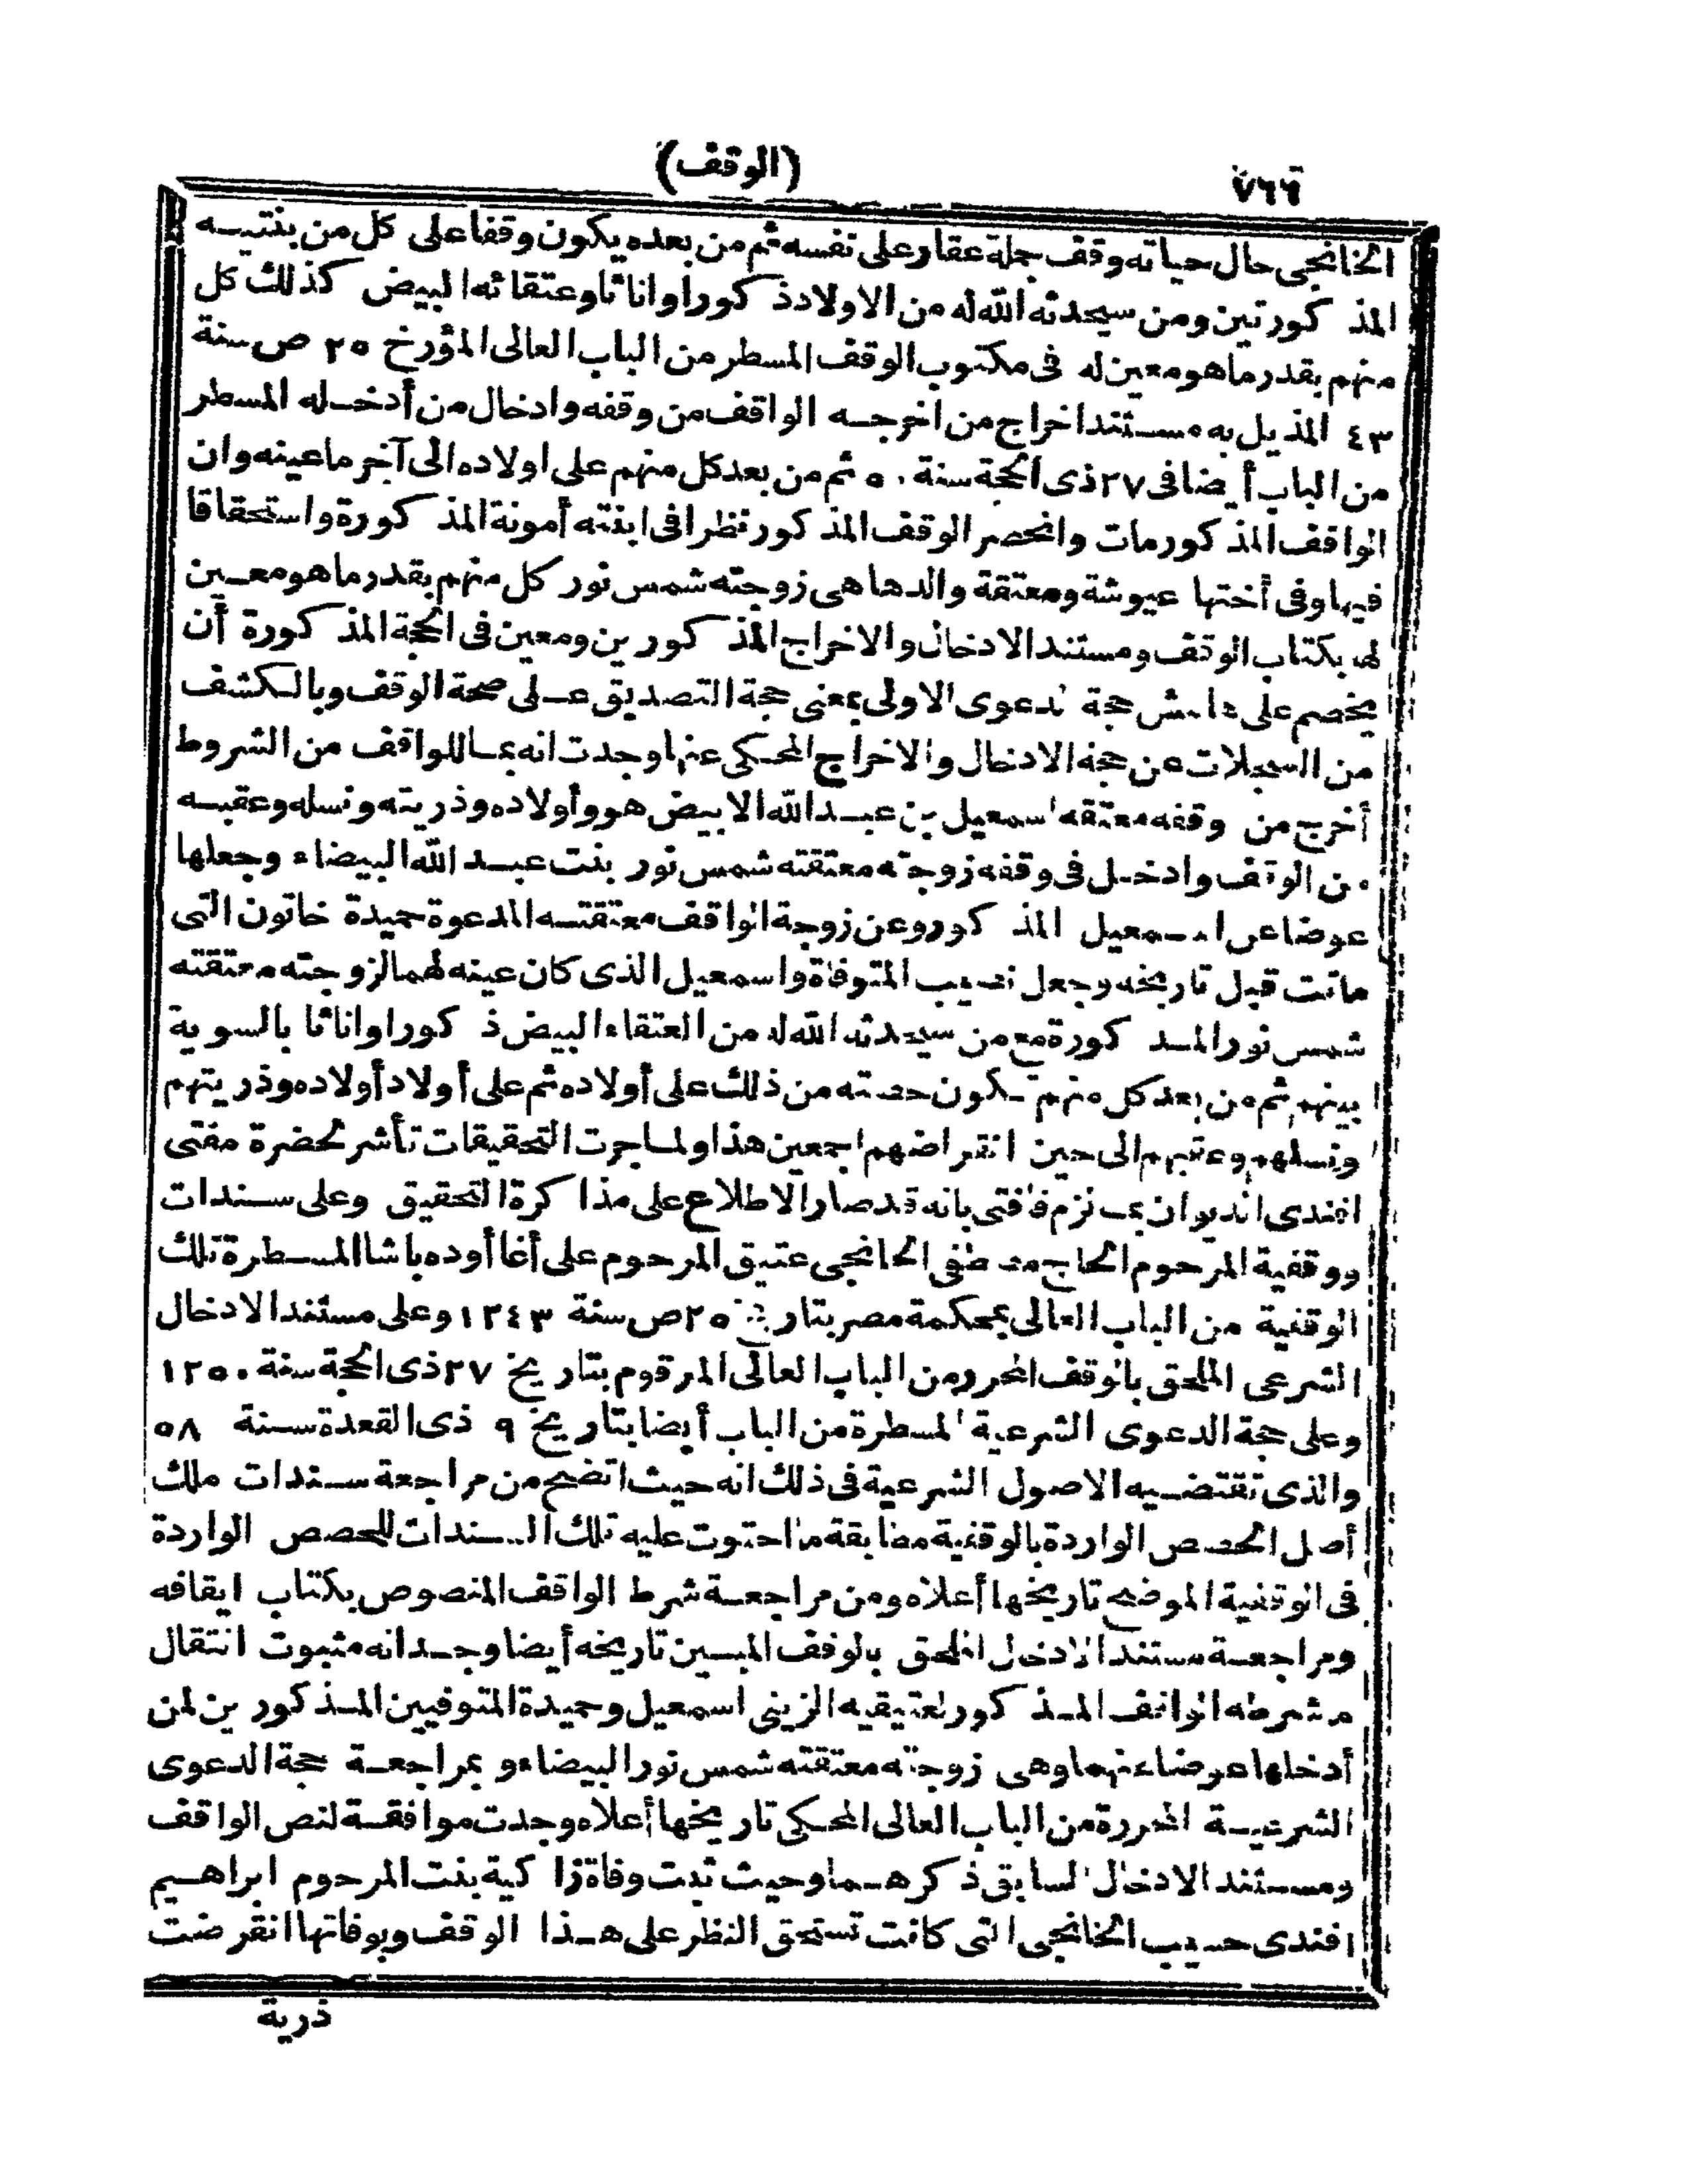 ٧٦٦
(الوقف)
الخانجى حال حياته وقف جملة عقار على نفسه ثم من بعده يكون وقفا على كل من بنتيه
المذكورتين ومن سيحدثه الله له من الاولاد ذكورا واناثا وعتقائه البيض كذلك كل
منهم بقدر ما هو معين له فى مكتوب الوقف المسطر من الباب العالى المؤرخ ٢٥ ص سنة
٤٣ المذيل به مستند اخراج من اخرجه الواقف من وقفه وادخال من أدخله المسطر
من الباب أيضا فى ٢٧ ذى الحجة سنة ٥٠ ثم من بعد كل منهم على اولاده الى آخر ما عينه وان
الواقف المذكور مات وانحصر الوقف المذكور نظرا فى ابنته أمونة المذكورة واستحقاقا
فيها وفى أختها عيوشة ومعتقة والدها هى زوجته شمس نور كل منهم بقدر ما هو معين
له بكتاب الوقف ومستند الادخال والاخراج المذكورين ومعين فى الحجة المذكورة أن
يخصم على هامش حجة الدعوى الاولى بمعنى حجة التصديق على صحة الوقف وبالكشف
من السجلات عن حجة الادخال والاخراج المحكى عنها وجدت انه بما للواقف من الشروط
أخرج من وقفه معتقه اسمعيل بن عبد الله الابيض هو وأولاده وذريته ونسله وعقبه
من الوقف وادخل فى وقفه زوجته معتقته شمس نور بنت عبد الله البيضاء وجعلها
عوضا عن اسمعيل المذكور وعن زوجة الواقف معتقته المدعوة حميدة خاتون التى
ماتت قبل تاريخه وجعل نصيب المتوفاة واسمعيل الذى كان عينه لهما لزوجته معتقته
شمس نور المذكورة مع من سيحدثه الله له من العتقاء البيض ذكورا واناثا بالسوية
بينهم ثم من بعد كل منهم تكون حصته من ذلك على أولاده ثم على أولاد أولاده وذريتهم
ونسلهم وعقبهم الى حين انقراضهم اجمعين هذا ولما جرت التحقيقات تأشر لحضرة مفتى
افندى الديوان بما لزم فافتى بانه قد صار الاطلاع على مذاكرة التحقيق وعلى سندات
ووقفية المرحوم الحاج مصطفى الخانجى عتيق المرحوم على أغا أوده باشا المسطرة تلك
الوقفية من الباب العالى بمحكمة مصر بتاريخ ٢٥ ص سنة ١٢٤٣ وعلى مستند الادخال
الشرعى الملحق بالوقف المحرر من الباب العالى المرقوم بتاريخ ٢٧ ذى الحجة سنة ١٢٥٠
وعلى حجة الدعوى الشرعية المسطرة من الباب أيضا بتاريخ ٩ ذى القعدة سنة ٥٨
والذى تقتضيه الاصول الشرعية فى ذلك انه حيث اتضح من مراجعة سندات ملك
أصل الحصص الواردة بالوقفية مطابقة ما احتوت عليه تلك السندات للحصص الواردة
فى الوقفية الموضح تاريخها أعلاه ومن مراجعة شرط الواقف المنصوص بكتاب ايقافه
ومراجعة مستند الادخال الملحق بالوقف المبين تاريخه أيضا وجد انه مثبوت انتقال
ما شرطه الواقف المذكور لعتيقيه الزينى اسمعيل وحميدة المتوفيين المذكورين لمن
أدخلها عوضا عنهما وهى زوجته معتقته شمس نور البيضاء و بمراجعة حجة الدعوى
الشرعية المحررة من الباب العالى المحكى تاريخها أعلاه وجدت موافقة لنص الواقف
ومستند الادخال السابق ذكرهما وحيث ثبت وفاة زاكية بنت المرحوم ابراهيم
افندى حسيب الخانجى التى كانت تستحق النظر على هذا الوقف وبوفاتها انقرضت
ذرية